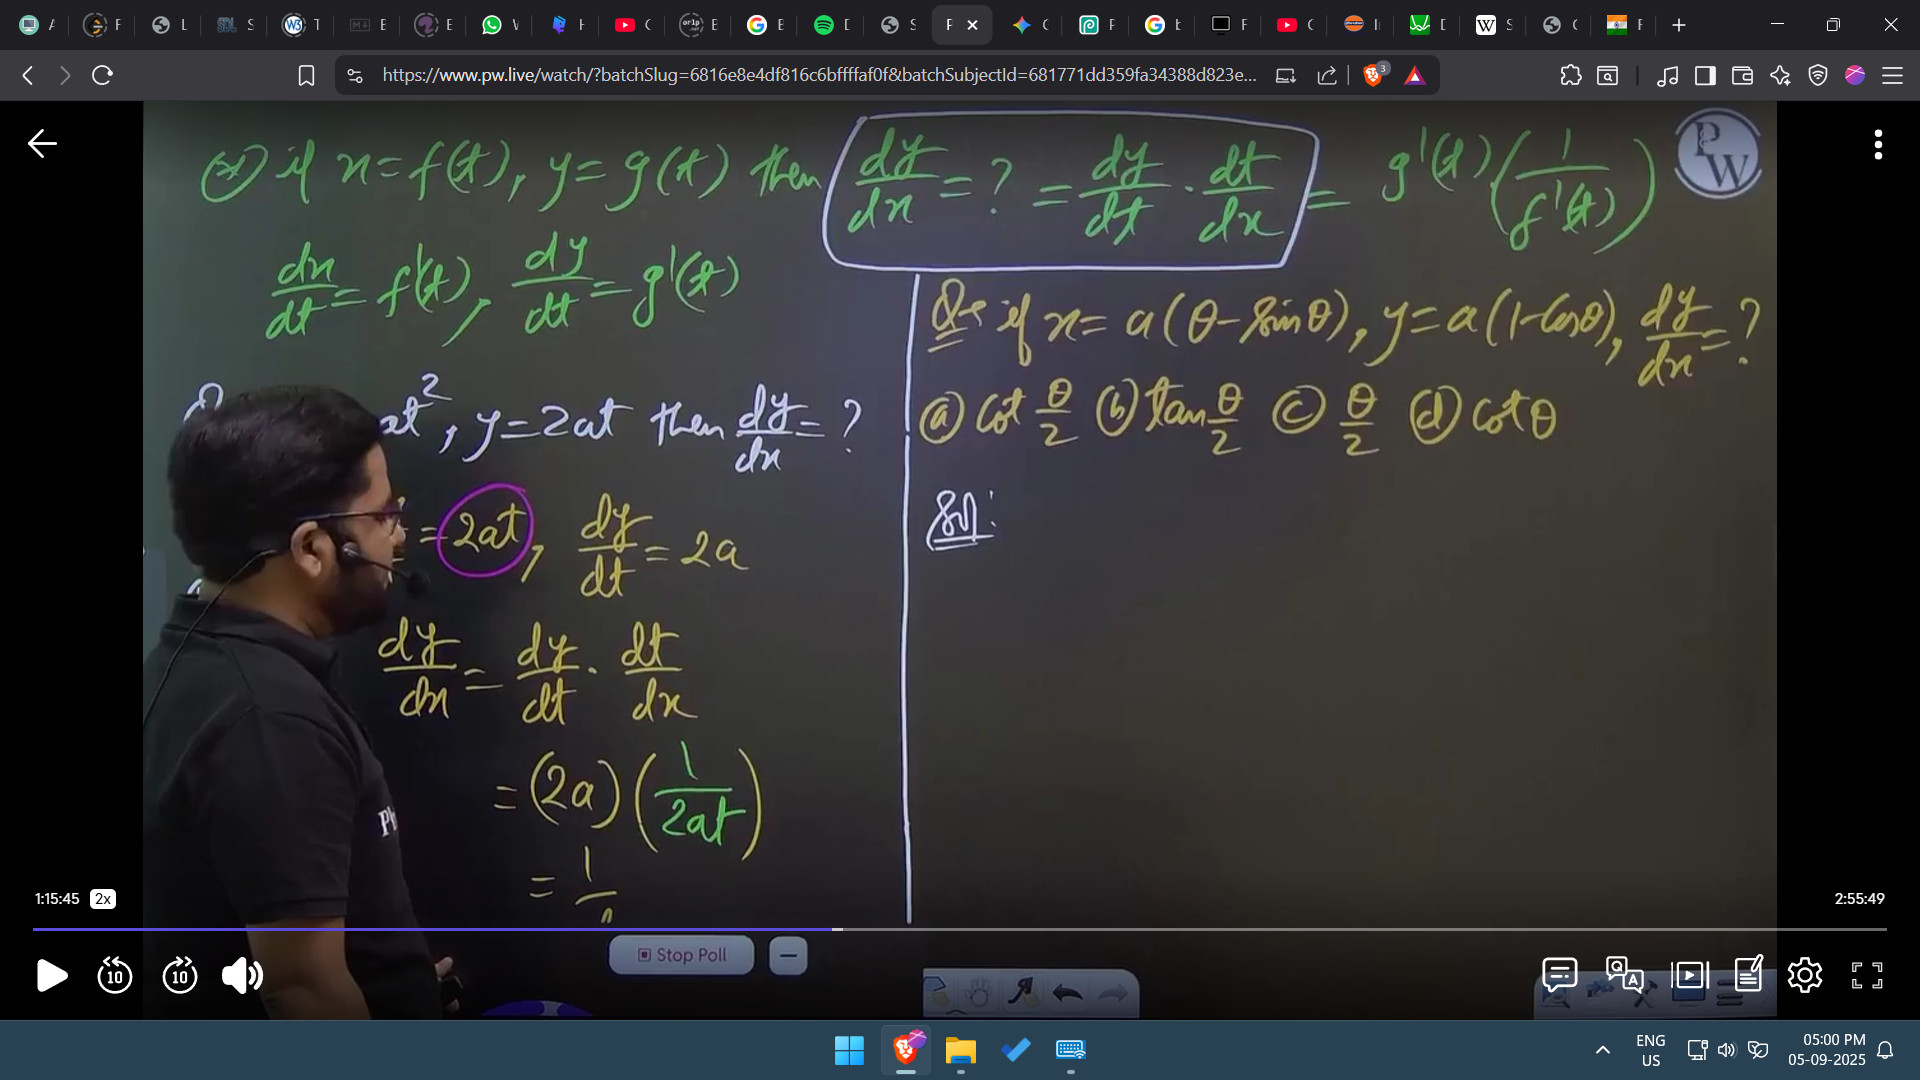 A
F
L
S
T
E
E
W
F
C
E
E
D
S
F
C
F
E
F
C
I
D
S
C
F
https://www.pw.live/watch/?batchSlug=6816e8e4df816c6bffffaf0f&batchSubjectId=681771dd359fa34388d823e...
3
PW
if x = f(t), y = g(t) then dy/dx = ? = dy/dt · dt/dx = g'(t) · (1/f'(t))
dx/dt = f'(t), dy/dt = g'(t)
at², y = 2at then dy/dx = ?
= 2at, dy/dt = 2a
dy/dx = dy/dt · dt/dx
= (2a) (1/2at)
= 1/
Q. if x = a(θ - sinθ), y = a(1 - cosθ), dy/dx = ?
(a) cot θ/2 (b) tan θ/2 (c) θ/2 (d) cot θ
Sol:
1:15:45 2x
2:55:49
Stop Poll
10
10
ENG
US
05:00 PM
05-09-2025